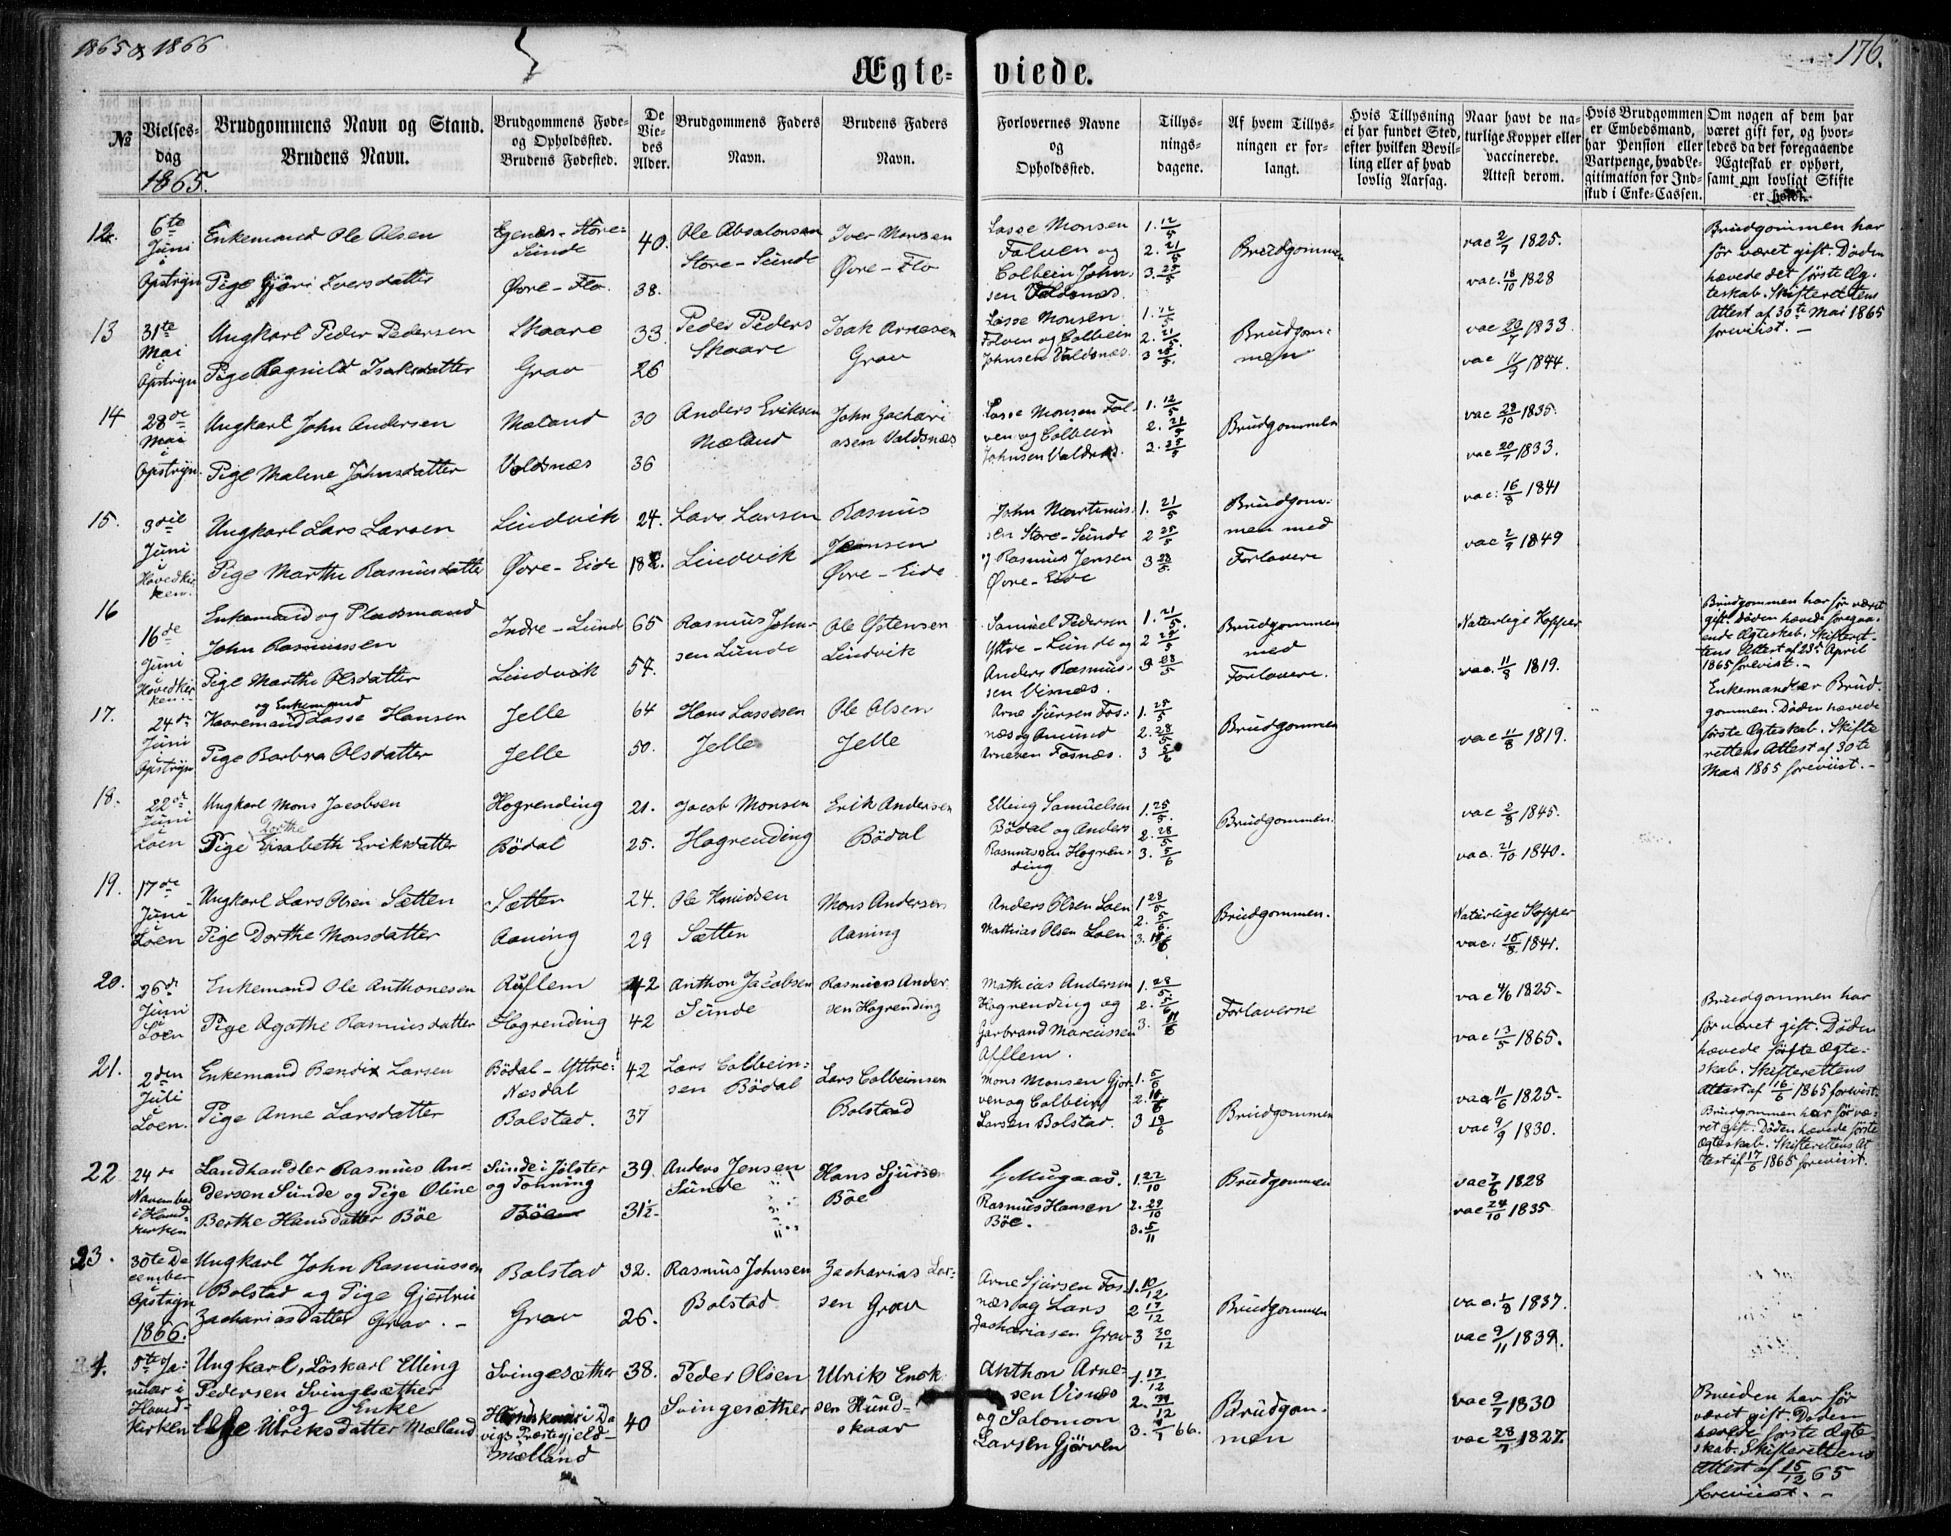 1865 & 1866
176.
Ægte-viede.
№
Vielses-dag
1865.
Brudgommens Navn og Stand.
Brudens Navn.
Brudgommens Føde-
og Opholdssted.
Brudens Fødested.
De
Vie-
des
Alder.
Brudgommens Faders
Navn.
Brudens Faders
Navn.
Forlovernes Navne
og
Opholdssted.
Tillys-
nings-
dagene.
Af hvem Tillys-
ningen er for-
langt.
Hvis Tillysning
ei har fundet Sted,
efter hvilken Bevil-
ling eller af hvad
lovlig Aarsag.
Naar havt de na-
turlige Kopper eller
vaccinerede.
Attest derom.
Hvis Brudgommen
er Embedsmand,
har Pension eller
Vartpenge, hvad Le-
gitimation for Ind-
skud i Enke-Cassen.
Om nogen af dem har
været gift før, og hvor-
ledes da det foregaaende
Ægteskab er ophørt,
samt om lovligt Skifte
er holdt.
12.
6te
Juni
i
Opstryn
Enkemand Ole Olsen
Pige Gjøri Iversdatter
Egenes-Store-
Sunde
Øvre-Flo.
40.
38.
Ole Absalonsen
Store-Sunde
Iver Monsen
Øvre-Flo
Lasse Monsen
Folven og
Colbein John-
sen Valdsnæs.
1. 12/5
2. 21/5
3. 25/5
Brudgommen
vac 2/7 1825.
vac. 18/10 1828
Brudgommen har
før været gift. Døden
hævede det første Æg-
teskab. Skifterettens
Attest af 30te Mai 1865
foreviist. -
13
31te
Mai
i
Opstryn
Ungkarl Peder Pedersen
Pige Ragnild Isaksdatter
Skaare
Grav
33
26
Peder Peders
Skaare
Isak Arnesen
Grav
Lasse Monsen
Folven og Colbein
Johnsen Valdsnæs.
1. 12/5
2. 21/5
3 25/5
Brudgom-
men
vac 20/7 1833.
vac 11/9 1844.
14
28de
Mai
i
Opstryn
Ungkarl John Andersen
Pige Malene Johnsdatter
Mæland
Valdsnæs
30
36
Anders Eriksen
Mæland
John Zachari
asen Valdsnæs
Lasse Monsen Fol-
ven og Colbein
Johnsen Valdsnæs.
1. 12/5
2. 21/5
3. 25/5
Brudgommen
vac 29/10 1835.
vac 20/7 1833.
15.
3die
Juni
i
Hovedkir
ken.
Ungkarl Lars Larsen
Pige Marthe Rasmusdatter
Lindvik
Øvre-Eide
24.
Lars Larsen
Lindvik
Rasmus
Jensen
Øvre-Eide
John Martinus-
sen Store-Sunde
og Rasmus Jensen
Øvre-Eide
1. 21/5
2 25/5
3 28/5
Brudgom-
men med
Forlovere
vac. 16/8 1841
vac 2/9 1849
16
16de
Juni
i
Hovedkir
ken.
Enkemand og Pladsmand
John Rasmussen
Pige Marthe Olsdatter
Indre-Lunde
Lindvik
65
54.
Rasmus John-
sen Lunde
Ole Østensen
Lindvik
Samuel Pedersen
Yttre-Lunde og
Anders Rasmus-
sen Visnæs.
1. 21/5
2 25/5
3 28/5
Brudgommen
med
Forlovere.
Naturlige Kopper
vac. 11/8 1819.
Brudgommen har før været
gift. Døden hævede foregaa-
ende Ægteskab. Skifteret-
tens Attest af 23de April
1865 foreviist. -
17.
24de
Juni
i
Opstryn
og Enkemand
Kaaremand Lasse Hansen
Pige Barbra Olsdatter
Jelle
Jelle
64
50.
Hans Lassesen
Jelle
Ole Olsen
Jelle
Arne Sjursen Fos-
næs og Amund
Arnesen Fosnæs.
1. 25/5
2. 28/5
3 5/6
Brudgommen
vac 11/8 1819.
Enkemand er Brud-
gommen. Døden hævede
første Ægteskab. Skifte
rettens Attest af 30te
Mai 1865 foreviist. -
18.
22de
Juni
i
Loen
Ungkarl Mons Jacobsen
Dorthe
Pige Elisabeth Eriksdatter
Hogrending
Bödal
21.
25.
Jacob Monsen
Hogrending
Erik Andersen
Bödal
Elling Samuelsen
Bödal og Anders
Rasmussen Hogren-
ding
1. 25/5
2. 28/5
3. 5/6
Brudgommen.
vac 2/8 1845.
vac. 21/10 1840.
19.
17de
Juni
i
Loen
Ungkarl Lars Olsen Sætten
Pige Dorthe Monsdatter
Sætten
Aaning
24.
29
Ole Knudsen
Sætten
Mons Andersen
Aaning
Anders Olsen Loen
Mathias Olsen Loen
1 28/5
2. 5/6
3. 11/6
Brudgommen.
Naturlige Kopper
vac. 15/8 1841.
20.
26de
Juni
i
Loen
Enkemand Ole Anthonesen
Pige Agathe Rasmusdatter
Auflem
Hogrending
42
42
Anthon Jacobsen
Sunde
Rasmus Ander
sen Hogrending
Mathias Andersen
Hogrending og
Garbrand Marcussen
Afflem.
1. 28/5
2. 5/6
3. 11/6
Forloverne
vac 4/6 1825-
vac 13/5 1865.
Brudgommen har
før været gift. Døden
hævede første Ægte-
skab. Skifterettens
Attest af 16/6 1865 foreviist.
21.
2den
Juli
i
Loen.
Enkemand Bendix Larsen
Pige Anne Larsdatter
Bödal-Yttre-
Næsdal
Bolstad.
42
37
Lars Colbein-
sen Bödal
Lars Colbeinsen
Bolstad
Mons Monsen Gjør-
ven og Colbein
Larsen Bolstad.
1. 5/6
2. 11/6
3 19/6
Brudgommen
vac 11/6 1825-
vac 9/9 1830.
Brudgommen har før væ-
ret gift. Døden hævede første
Ægteskab. Skifterettens At
test af 17/6 1865 foreviist.
22
24de
November
i Hoved-
kirken
Landhandler Rasmus An-
dersen Sunde og Pige Oline
Berthe Hansdatter Böe
Sunde i Jölster
og Tonning
Böe
39.
31½.
Anders Jensen
Sunde
Hans Sjursen
Böe
Mugaas.
Rasmus Hansen
Böe.
1. 22/10
2. 29/10
3. 5/11
Brudgommen
vac 7/6 1828
vac 24/10 1835
23.
30te De
cember
i
Opstryn
Ungkarl John Rasmussen
Bolstad og Pige Gjertrui
Zachariasdatter Grav. -
Bolstad
Grav
32.
26.
Rasmus Johnsen
Bolstad
Zacharias Lar-
sen Grav
Arne Sjursen Fos-
næs og Lars
Zachariasen Grav
1. 10/12
2 17/12
3 30/12
Brudgommen
vac. 1/8 1837.
vac 9/11 1839.
1866.
24.
5te Ja-
nuar i
Hoved-
kirken
Ungkarl, Löskarl Elling
Pedersen Svingesæther
og Enke
Ulriksdatter Mælland
Svingesæther
Hundskaar i Da
vigs Præstegjeld-
Mælland
38.
40
Peder Olsen
Svingesæther
Ulrik Enok
sen Hund-
skaar
Anthon Arne-
sen Visnæs
og Salomon
Larsen Gjørven
1. 17/12
2. 31/12
3. 1/1 66.
Brudgom-
men
vac 9/7 1830
vac 28/7 1827.
Bruden har før
været gift. Døden
hævede første Ægte-
skab. Skifterettens
Attest af 15/12 65
foreviist. -